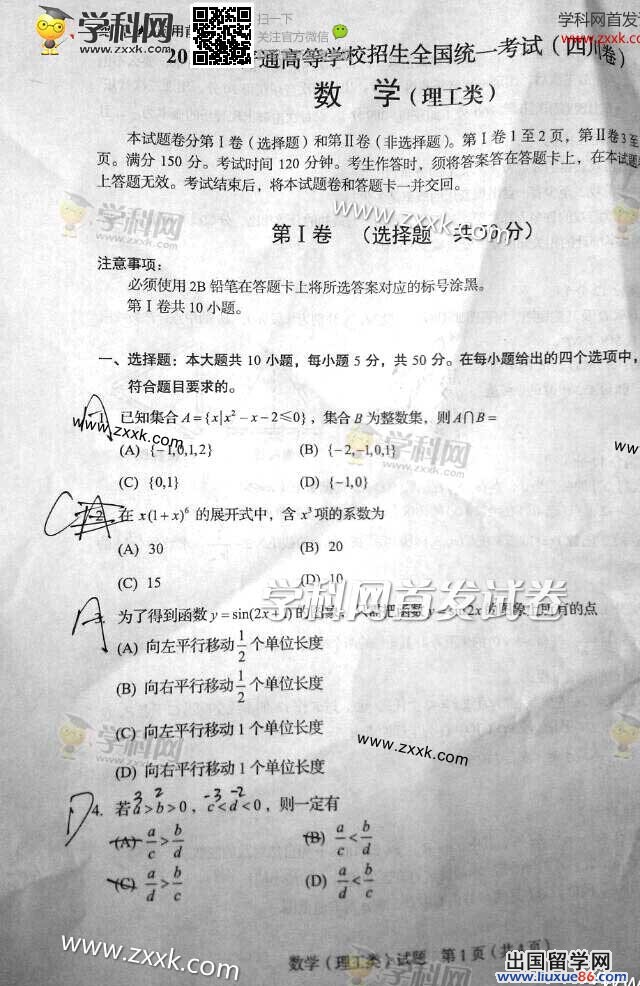 扫一下
关注官方微信
学科网首发
www.zxxk.com
学科网
www.zxxk.com
普通高等学校招生全国统一考试（四川卷）
数 学（理工类）
本试题卷分第Ⅰ卷（选择题）和第Ⅱ卷（非选择题）。第Ⅰ卷1至2页，第Ⅱ卷3至
页。满分150分。考试时间120分钟。考生作答时，须将答案答在答题卡上，在本试题
上答题无效。考试结束后，将本试题卷和答题卡一并交回。
学科网
www.zxxk.com
www.zxxk.com
第Ⅰ卷 （选择题 共50分）
注意事项：
必须使用2B铅笔在答题卡上将所选答案对应的标号涂黑。
第Ⅰ卷共10小题。
一、选择题：本大题共10小题，每小题5分，共50分。在每小题给出的四个选项中，
符合题目要求的。
A
1. 已知集合 A={x|x²－x－2≤0}，集合 B 为整数集，则 A∩B=
www.zxxk.com
学科网
zxxk.com
(A) {－1,0,1,2} (B) {－2,－1,0,1}
(C) {0,1} (D) {－1,0}
C
2. 在 x(1+x)⁶ 的展开式中，含 x³ 项的系数为
(A) 30 (B) 20
(C) 15 (D) 10
学科网首发试卷
A
为了得到函数 y=sin(2x+1) 的图象，只需把函数 y=sin2x 的图象上所有的点
(A) 向左平行移动 1/2 个单位长度
(B) 向右平行移动 1/2 个单位长度
(C) 向左平行移动 1 个单位长度
学科网
www.zxxk.com
www.zxxk.com
(D) 向右平行移动 1 个单位长度
3 2 -3 -2
D
4. 若 a>b>0，c<d<0，则一定有
(A) a/c > b/d (B) a/c < b/d
(C) a/d > b/c (D) a/d < b/c
www.zxxk.com
www.zxxk.com
数学（理工类）试题 第1页（共4页）
出国留学网
www.liuxue86.com